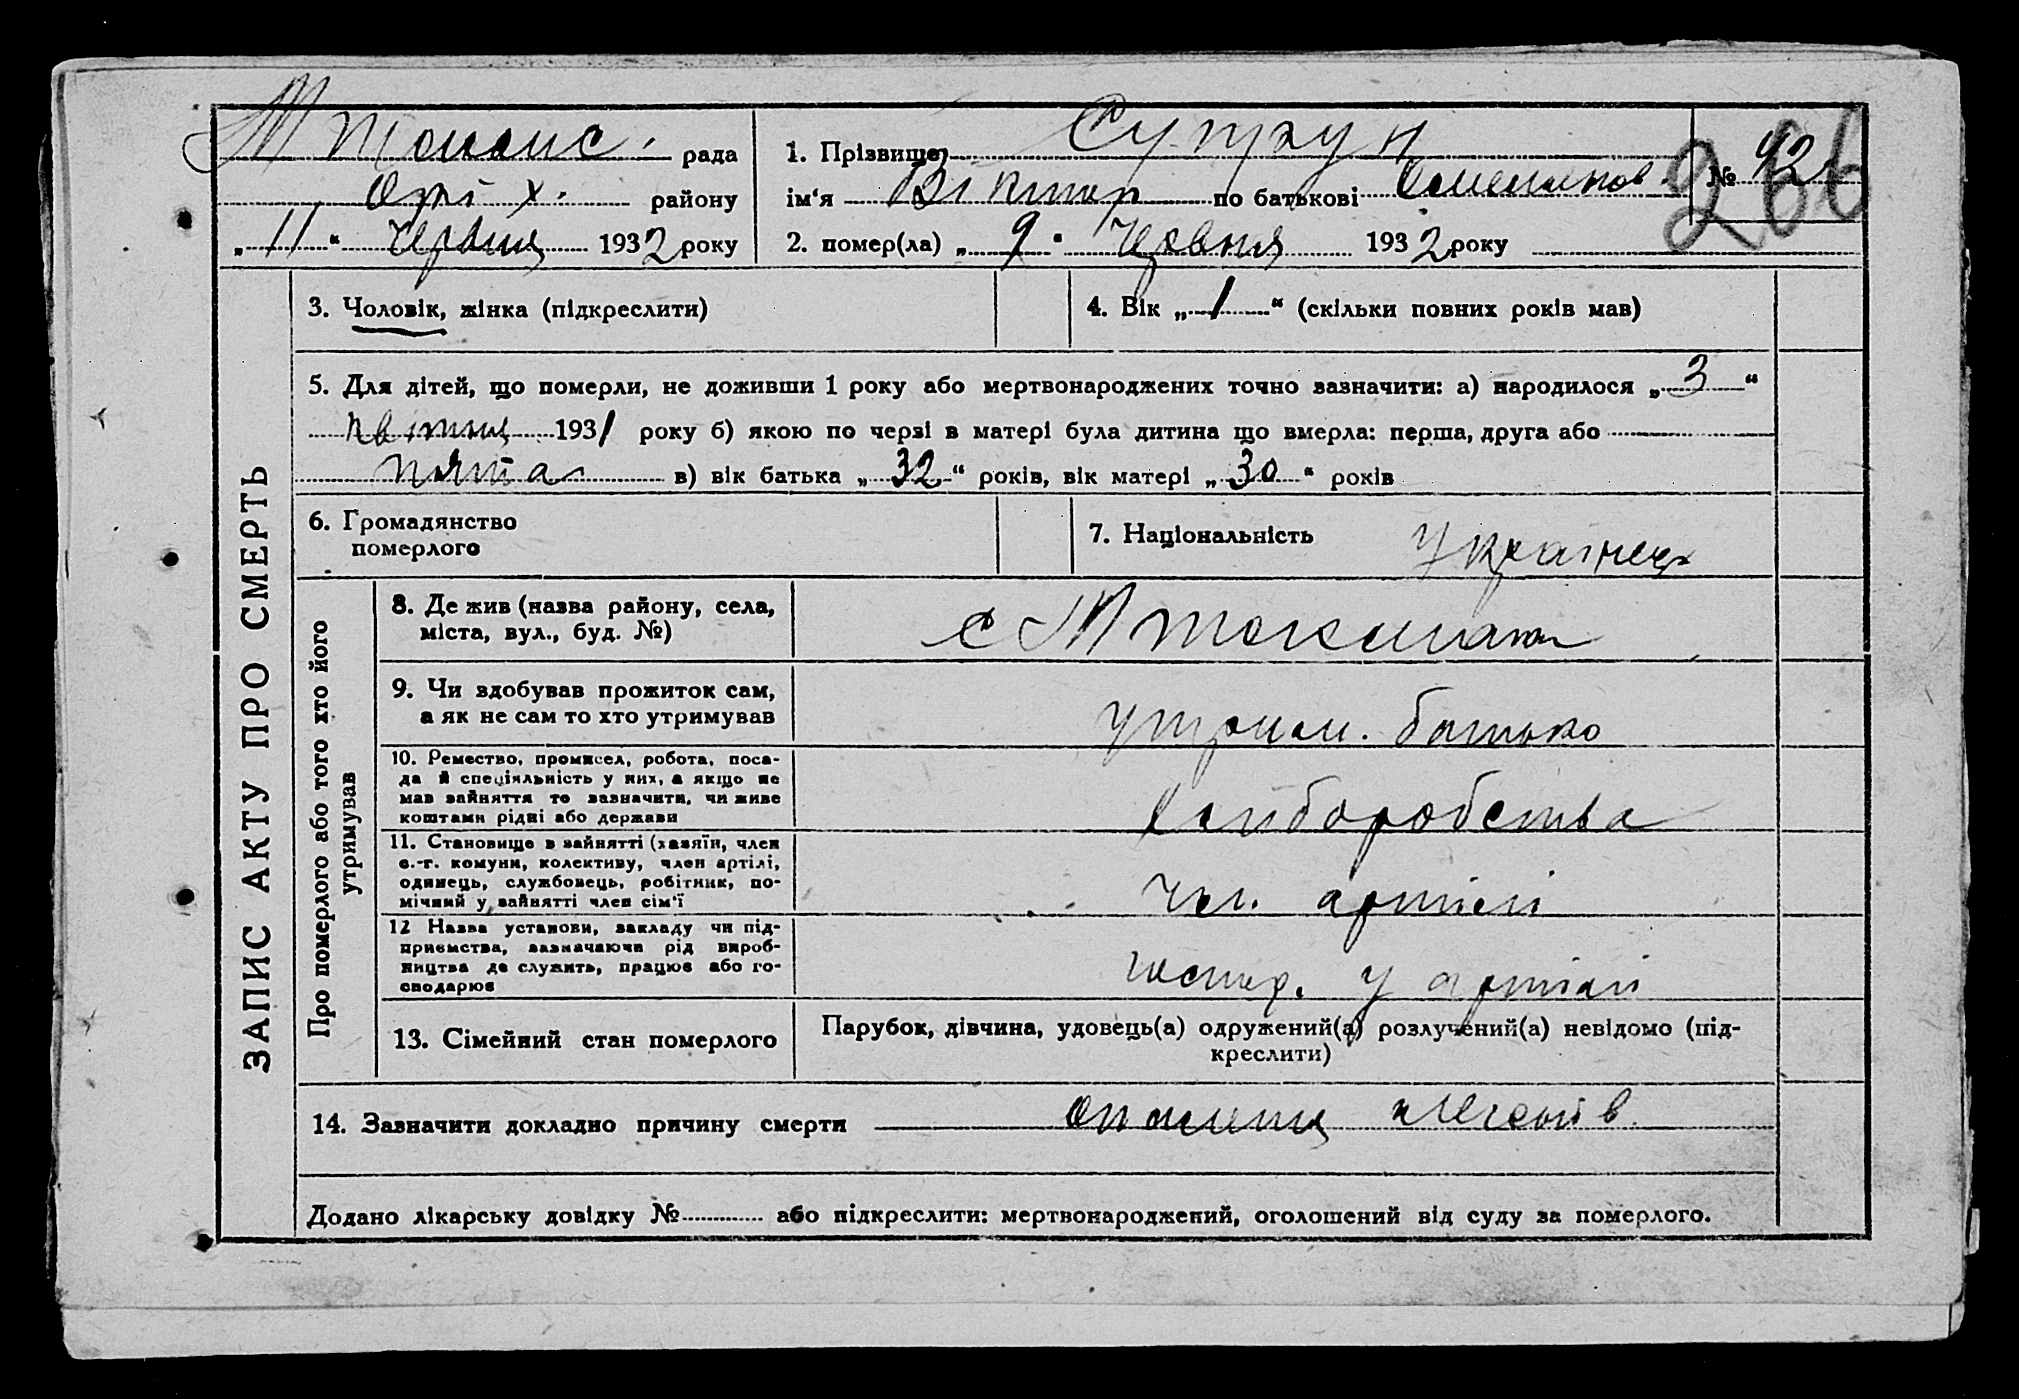 М Токмас. рада
Оріх. району
„11“ червня 1932 року
1. Прізвище Супрун
ім‘я Віктор по батькові Семенов
№ 42
266
2. помер(ла) „9“ Червня 1932 року
ЗАПИС АКТУ ПРО СМЕРТЬ
3. Чоловік, жінка (підкреслити)
4. Вік „1“ (скільки повних років мав)
5. Для дітей, що померли, не доживши 1 року або мертвонароджених точно зазначити: а) народилося „3“
квітня 1931 року б) якою по черзі в матері була дитина що вмерла: перша, друга або
пята в) вік батька „32“ років, вік матері „30“ років
6. Громадянство
померлого
7. Національність Українець
Про померлого або того хто його
утримував
8. Де жив (назва району, села,
міста, вул., буд. №)
с М Токмачка
9. Чи здобував прожиток сам,
а як не сам то хто утримував
утрим. батько
10. Ремество, промисел, робота, поса-
да й спеціяльність у них, а якщо не
мав зайняття то зазначити, чи живе
коштами рідні або держави
хліборобства
11. Становище в зайнятті (хазяїн, член
с.-г. комуни, колективу, член артілі,
одинець, службовець, робітник, по-
мічний у зайнятті член сім‘ї
чл. артілі
12 Назва установи, закладу чи під-
приємства, зазначаючи рід вироб-
ництва де служить, працює або го-
сподарює
у артілі
13. Сімейний стан померлого
Парубок, дівчина, удовець(а) одружений(а) розлучений(а) невідомо (під-
креслити)
14. Зазначити докладно причину смерти
Додано лікарську довідку № або підкреслити: мертвонароджений, оголошений від суду за померлого.